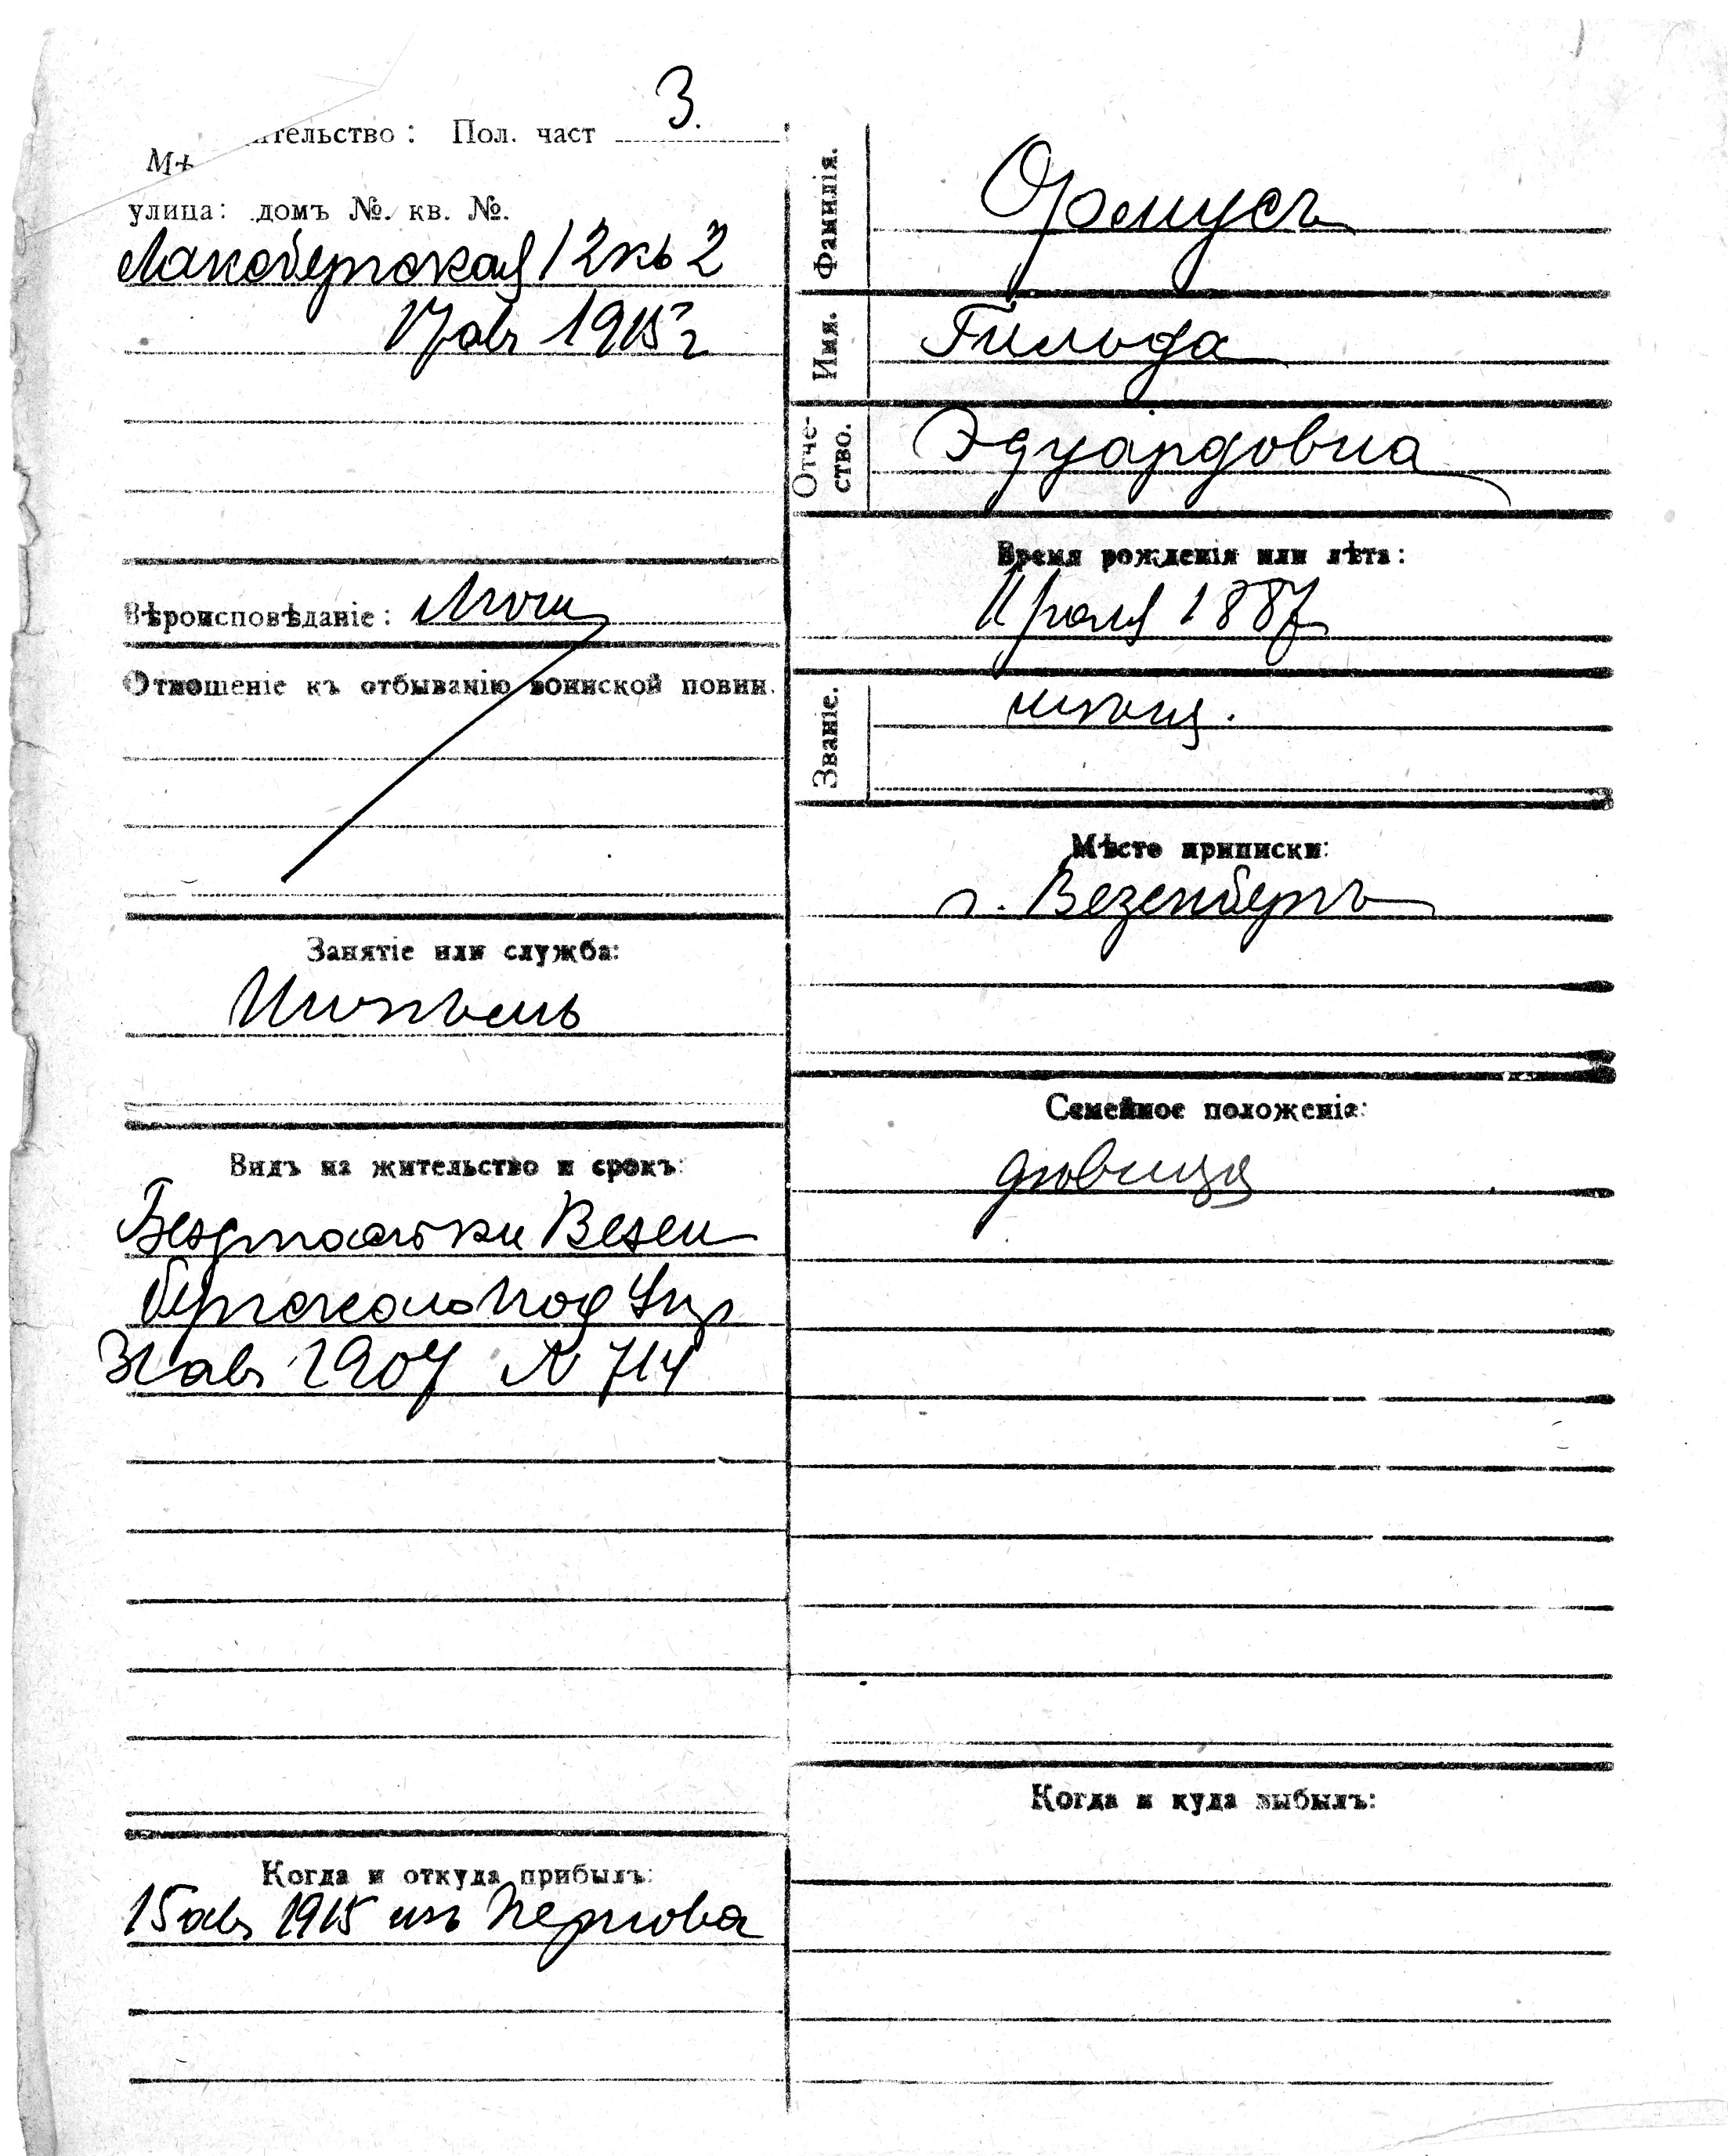 Мѣ тельство: Пол. част 3.
улица: домъ №. кв. №.
Лаксбергская 12 кв 2
17 авг 1915 г
Вѣроисповѣданіе: Лют
Отношеніе къ отбыванію воинской повин.
Занятіе или служба:
Видъ на жительство и срокъ:
Безсрочн кн Везен
бергская Гор Упр
31 авг 1907 N 714
Когда и откуда прибылъ:
15 авг 1915 изъ Пернова
Фамилія.
Имя. Гильда
Отче-
ство. Эдуардовна
Время рожденія или лѣта:
11 1887
Званіе. мѣщ.
Мѣсто приписки:
г. Везенбергъ
Семейное положеніе:
дѣвица
Когда и куда выбылъ: